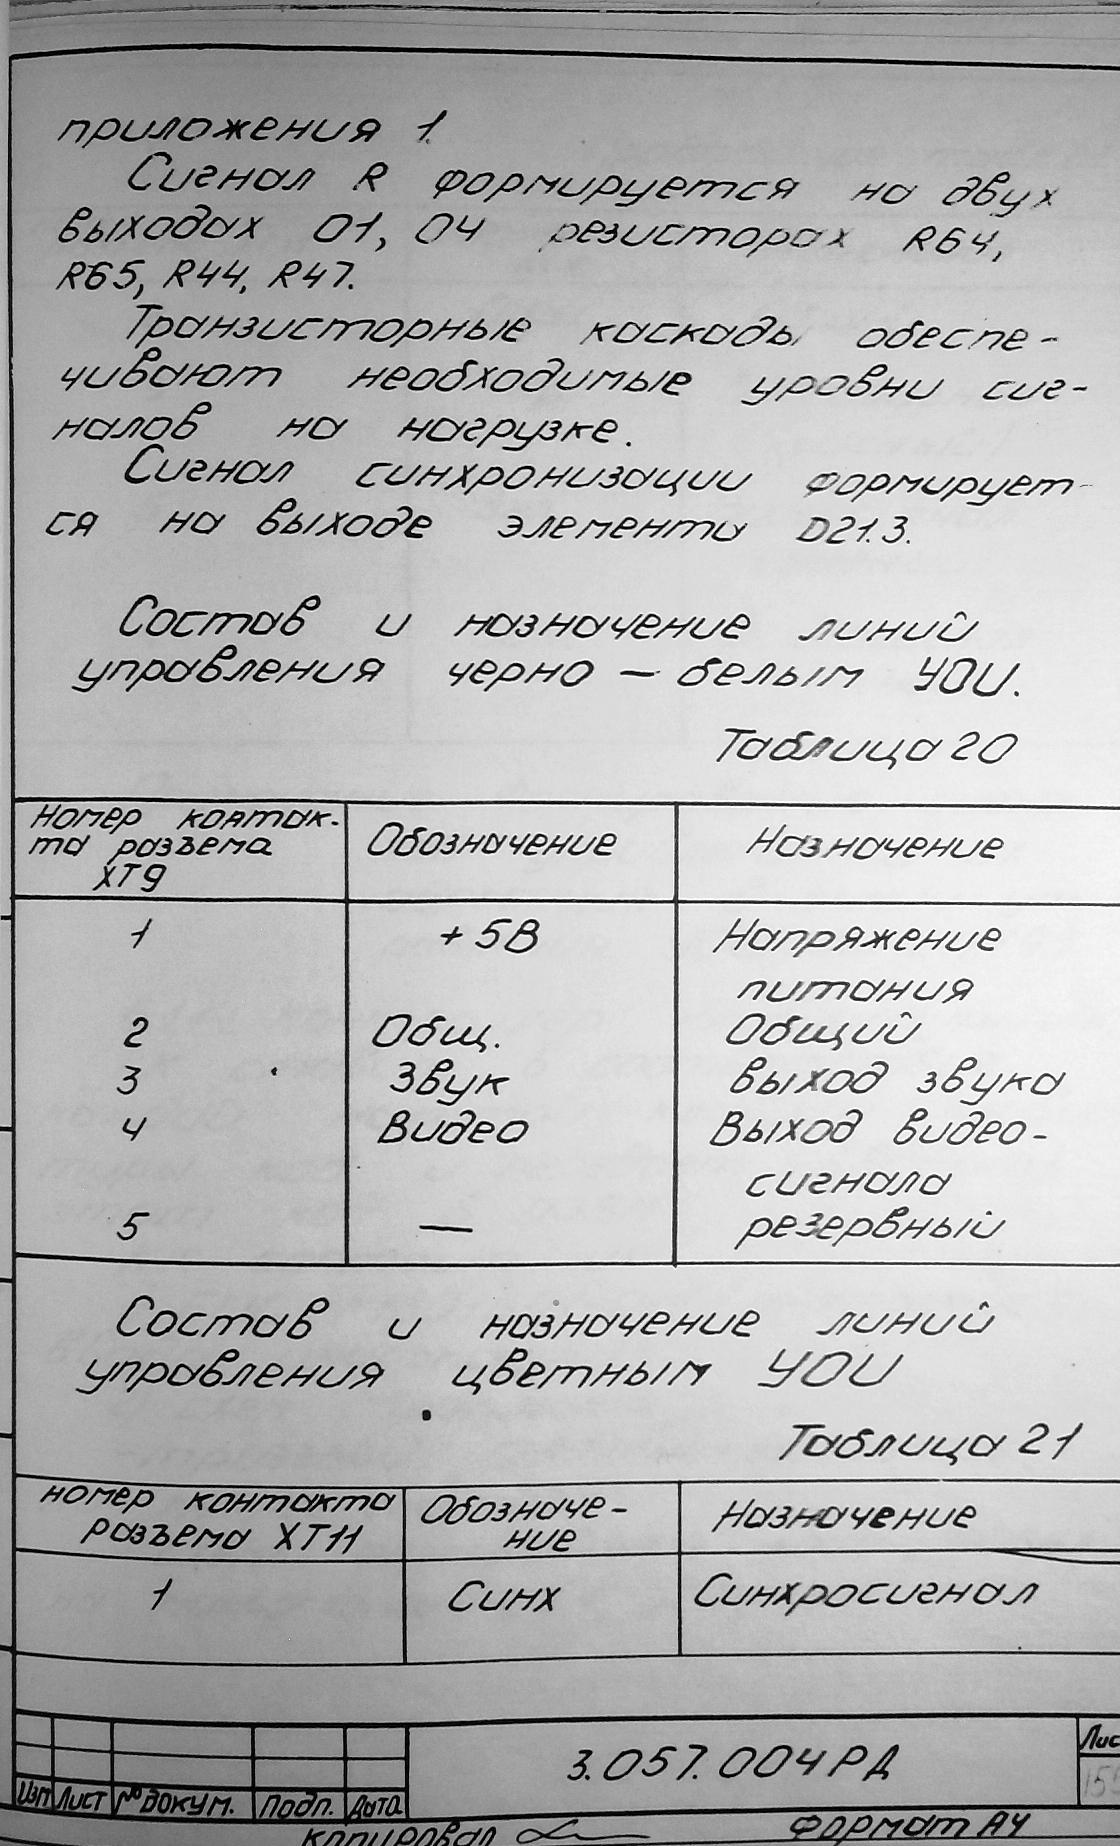 приложения 1.
Сигнал R формируется на двух
выходах 01, 04 резисторах R64,
R65, R44, R47.
Транзисторные каскады обеспе-
чивают необходимые уровни сиг-
налов на нагрузке.
Сигнал синхронизации формирует-
ся на выходе элемента D21.3.
Состав и назначение линий
управления черно — белым УОИ.
Таблица 20
Номер контак-
та разъема
ХТ9
Обозначение
Назначение
1 +5В Напряжение
питания
2 Общ. Общий
3 Звук выход звука
4 Видео Выход видео-
сигнала
5 — резервный
Состав и назначение линий
управления цветным УОИ
Таблица 21
номер контакта
разъема ХТ11
Обозначе-
ние
Назначение
1 Синх Синхросигнал
3.057.004 РД
Лис
Изм Лист № докум. Подп. Дата
копировал
Формат А4